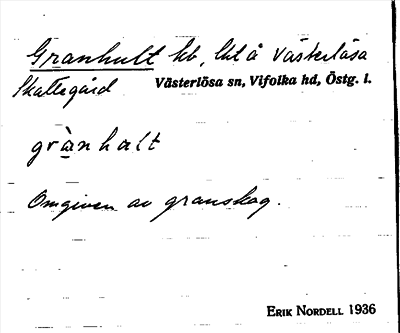 Granhult hb, lht å Västerlösa
Skattegård Västerlösa sn, Vifolka hd, Östg. l.
grànhalt
Omgiven av granskog.
ERIK NORDELL 1936